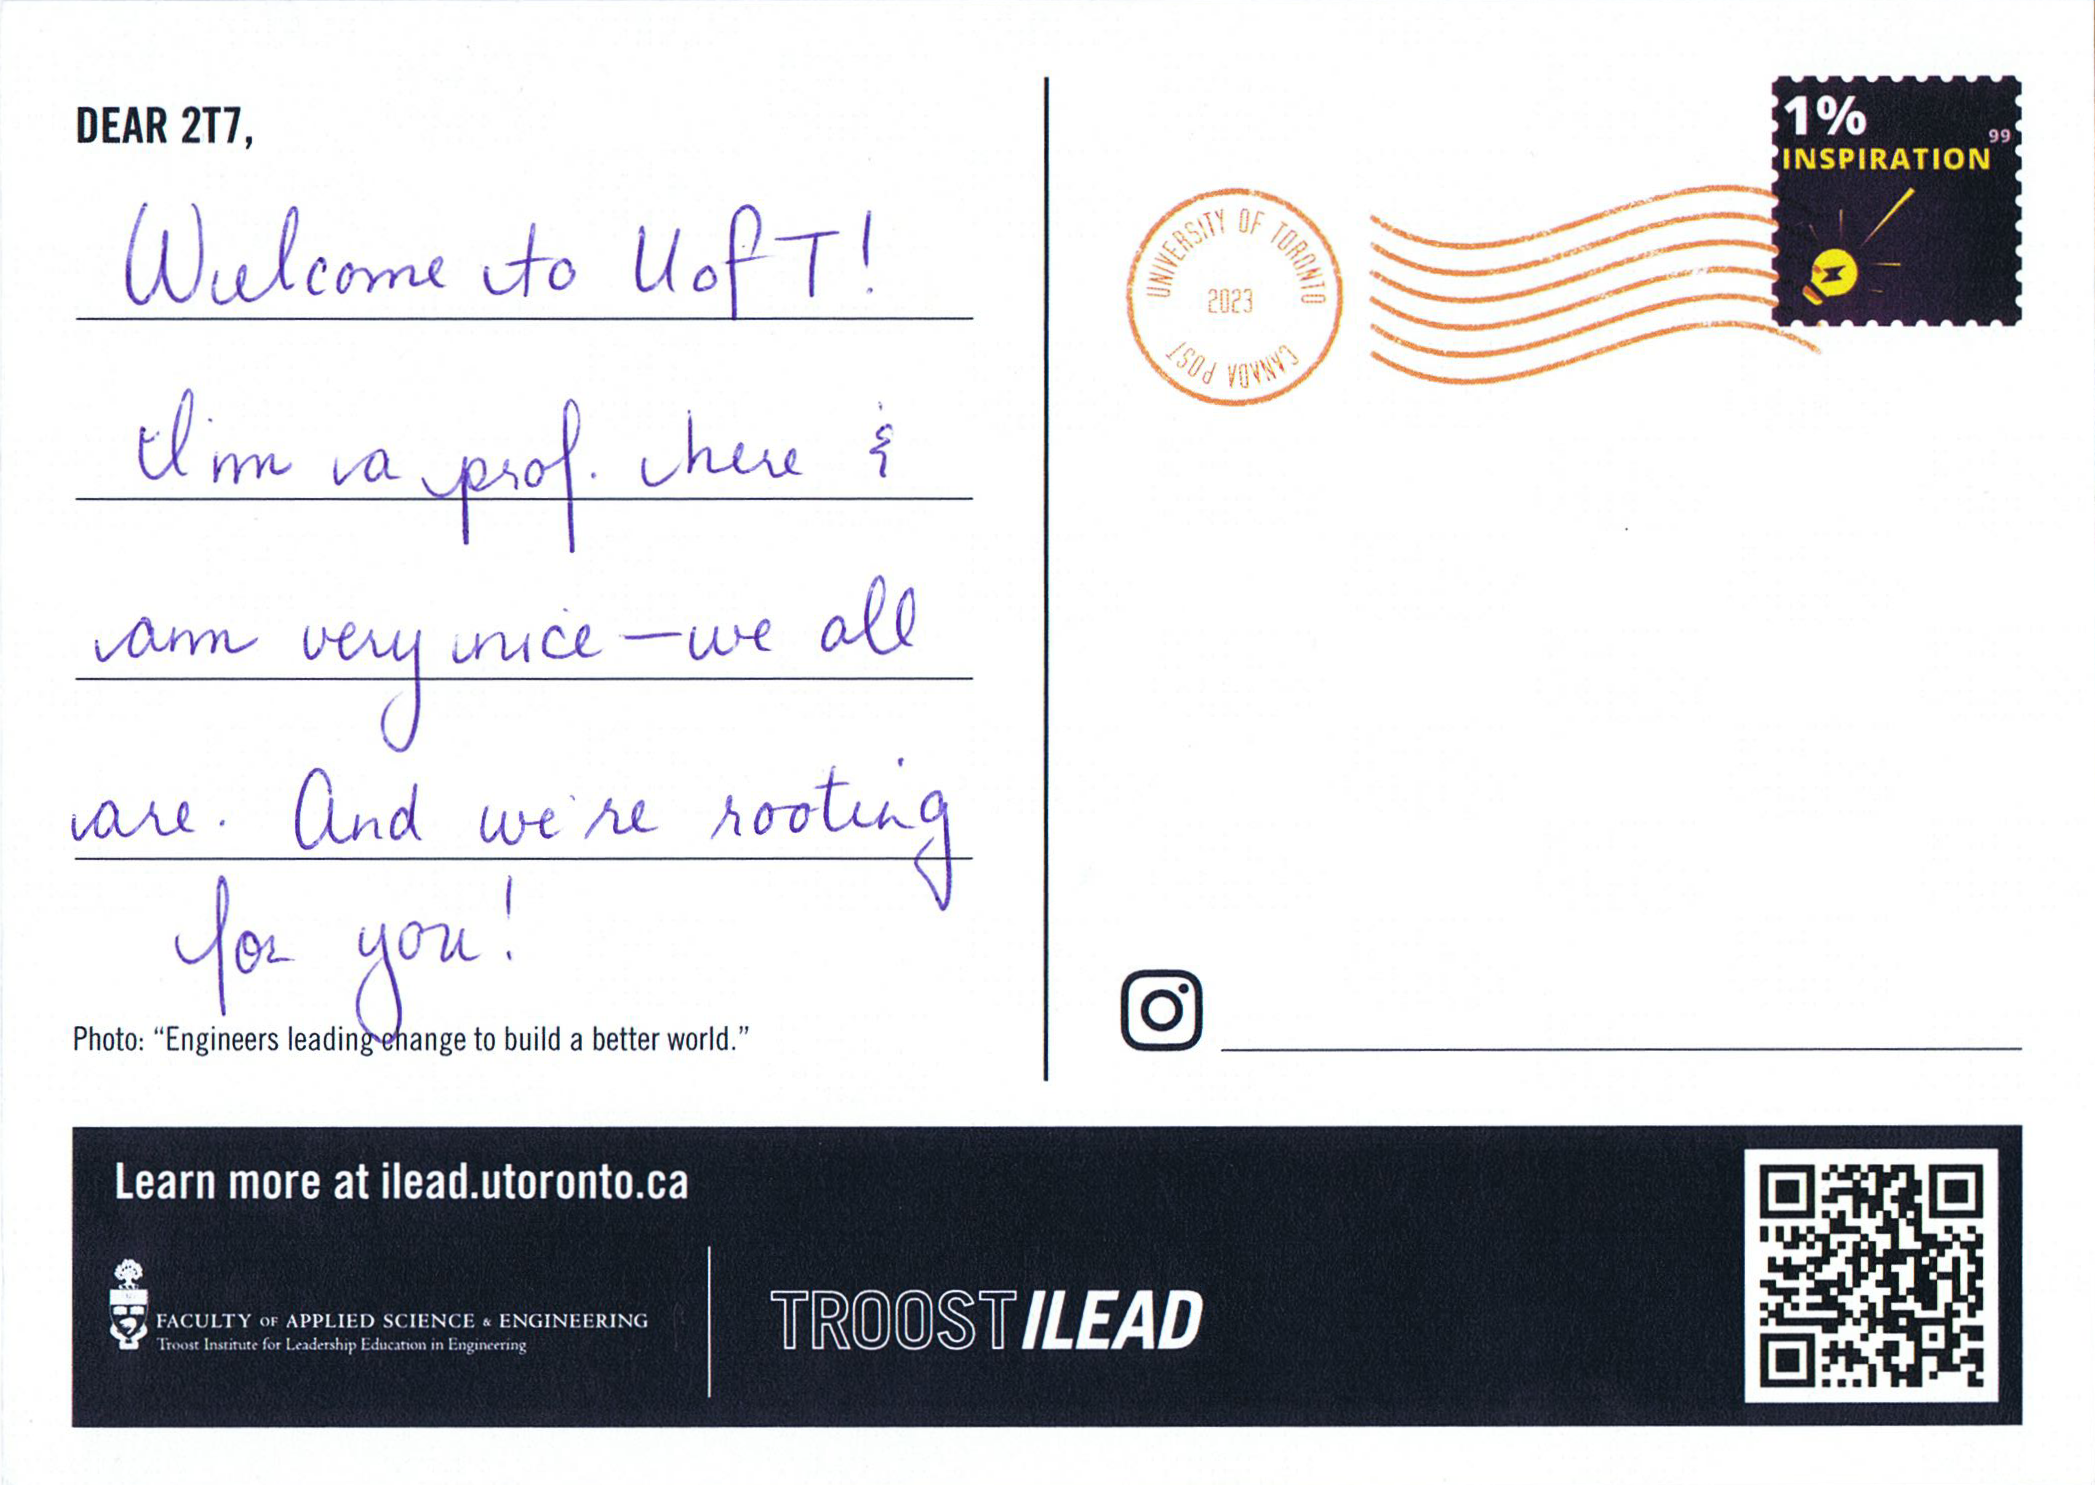 DEAR 2T7,
Welcome to UofT!
I'm a prof. here &
am very nice – we all
are. And we're rooting
for you!
Photo: “Engineers leading change to build a better world.”
1%
99
INSPIRATION
UNIVERSITY OF TORONTO
2023
CANADA POST
Learn more at ilead.utoronto.ca
FACULTY OF APPLIED SCIENCE & ENGINEERING
Troost Institute for Leadership Education in Engineering
TROOST ILEAD